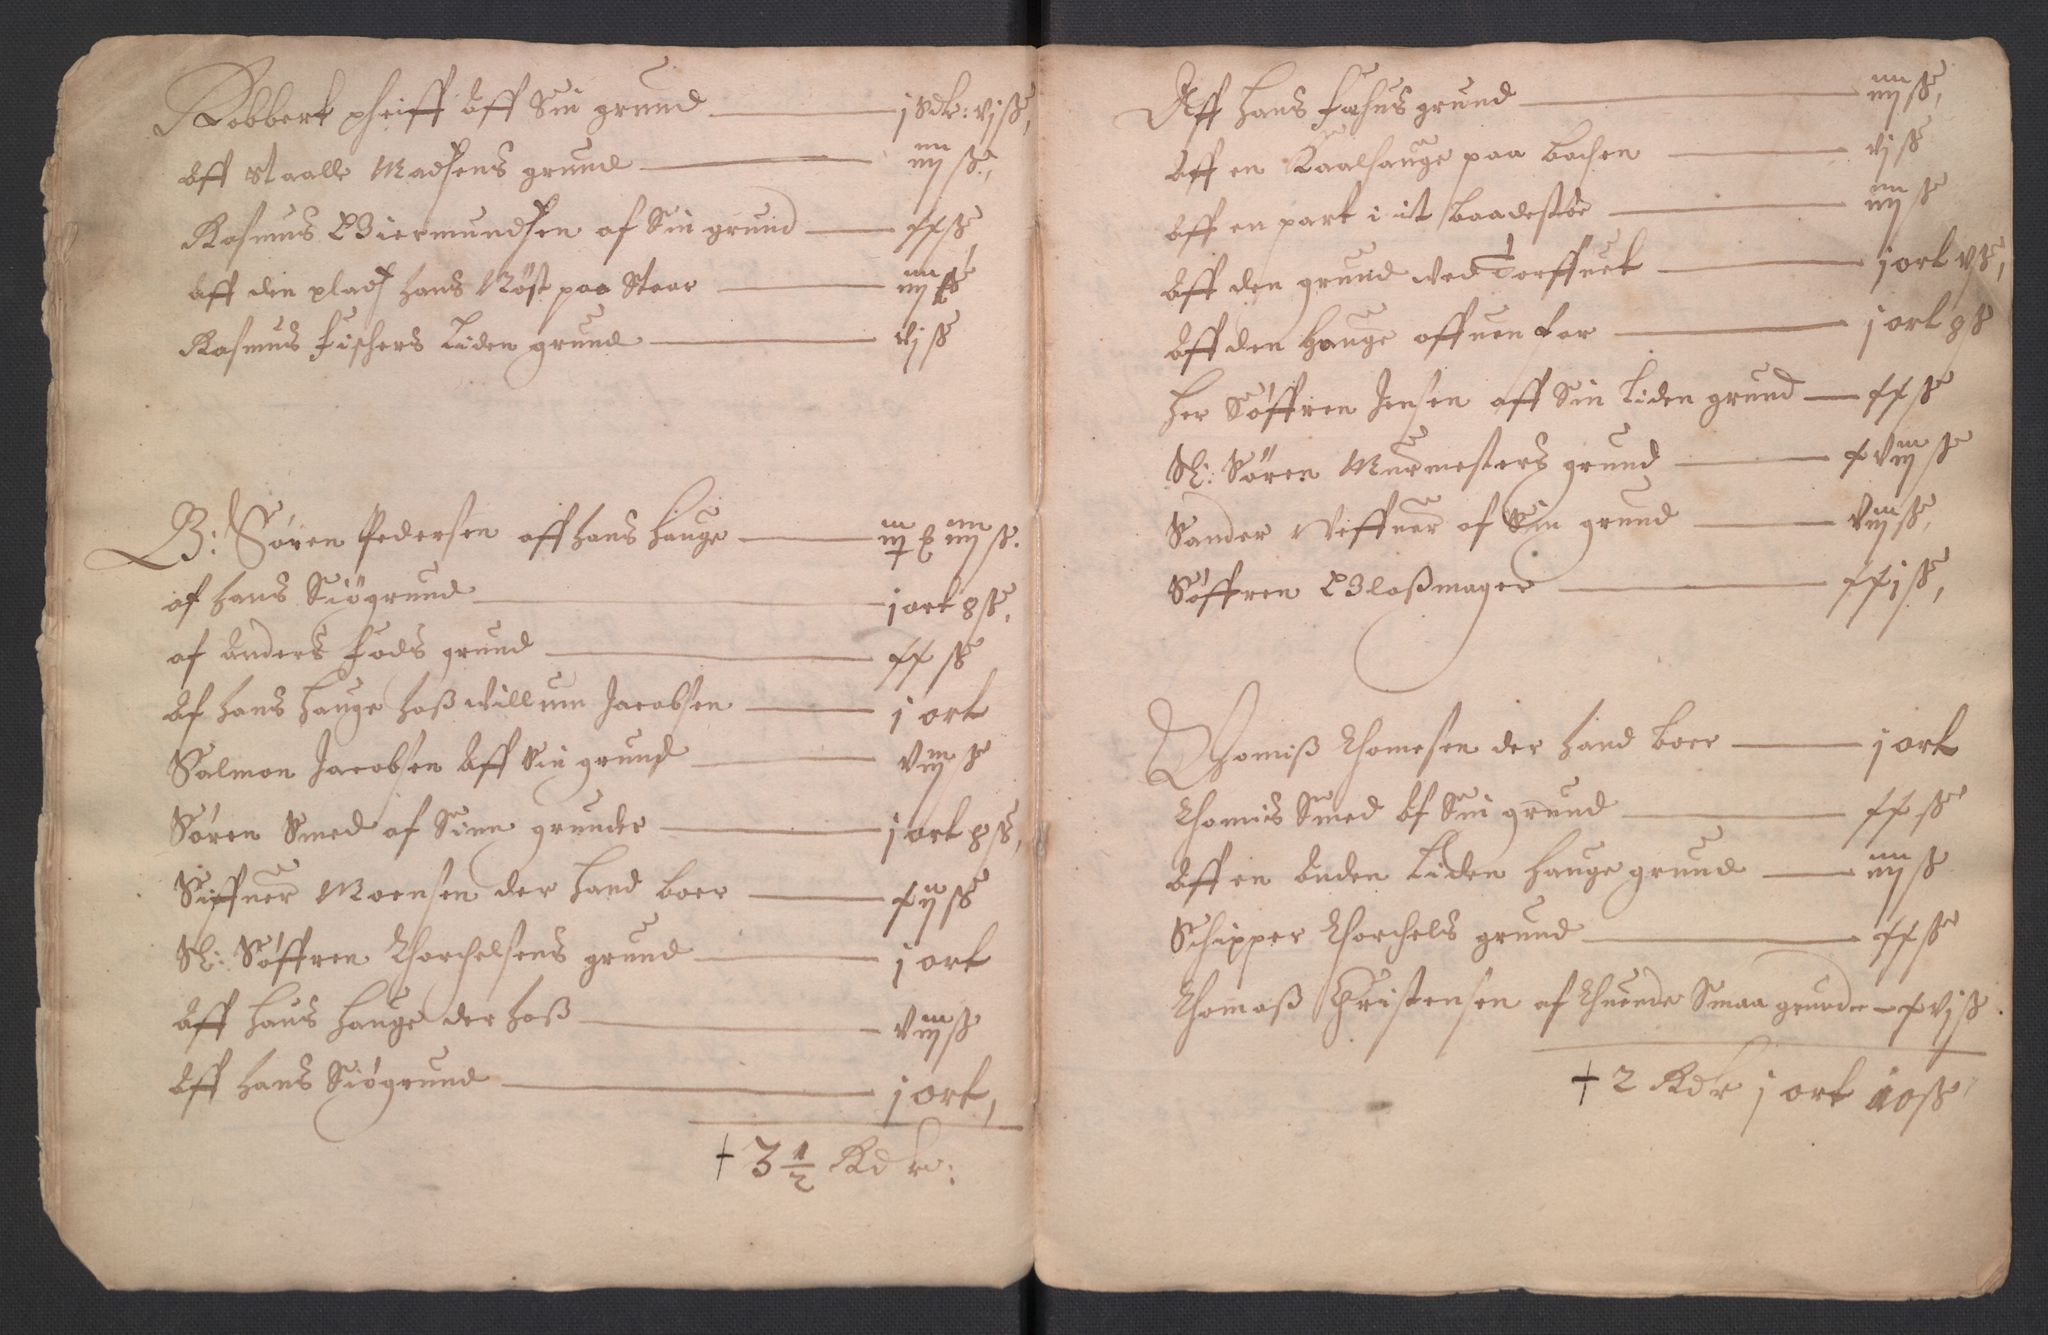 Robbert pheiff aff Sin grund — j Rdr: vjß,
Aff Staalle Madsens grund — iiijß,
Rasmus Giermundsen af Sin grund — xxß,
Aff den plads hans Röst paa Staar — iiijß
Rasmus Fischers Liden grund — vjß
B: Sören Pedersen aff hans hauge — iiiß.
af hans Siögrund — j ort 8ß,
af Anders Fods grund — xxß
Af hans hauge hoß Willum Jacobsen — j ort
Salmon Jacobsen Aff Sin grund — viijß
Sören Smed af Sinn grunde — j ort 8ß,
Siffuer Moensen der hand boer — xijß
Sl: Söffren Thorchelsens grund — j ort
Aff hans hauge der hoß — viijß
Aff hans Siögrund — j ort,
+ 3 1/2 Rdr:
Aff hans Fæhus grund — iiijß,
Aff en Kaalhauge paa bachen — vjß
Aff en part i it baadestöe — iiijß
Aff den grund wed Torffuet — j ort vß,
Aff den hauge offuen for — j ort 8ß
Her Söffren Jensen aff Sin Liden grund — xxß
Sl: Sören Muermesters grund — xviijß
Sander Weffuer af Sin grund — viijß,
Söffren Glaßmager — xxjß,
Thomiß Thomesen der hand boer — j ort
Thomis Smed Af Sin grund — xxß
Aff en Anden Liden hauge grund — iiijß
Schipper Thorchels grund — xxß
Thomaß Christensen af thuende Smaa grunde — xvjß
+ 2 Rdr j ort 10ß